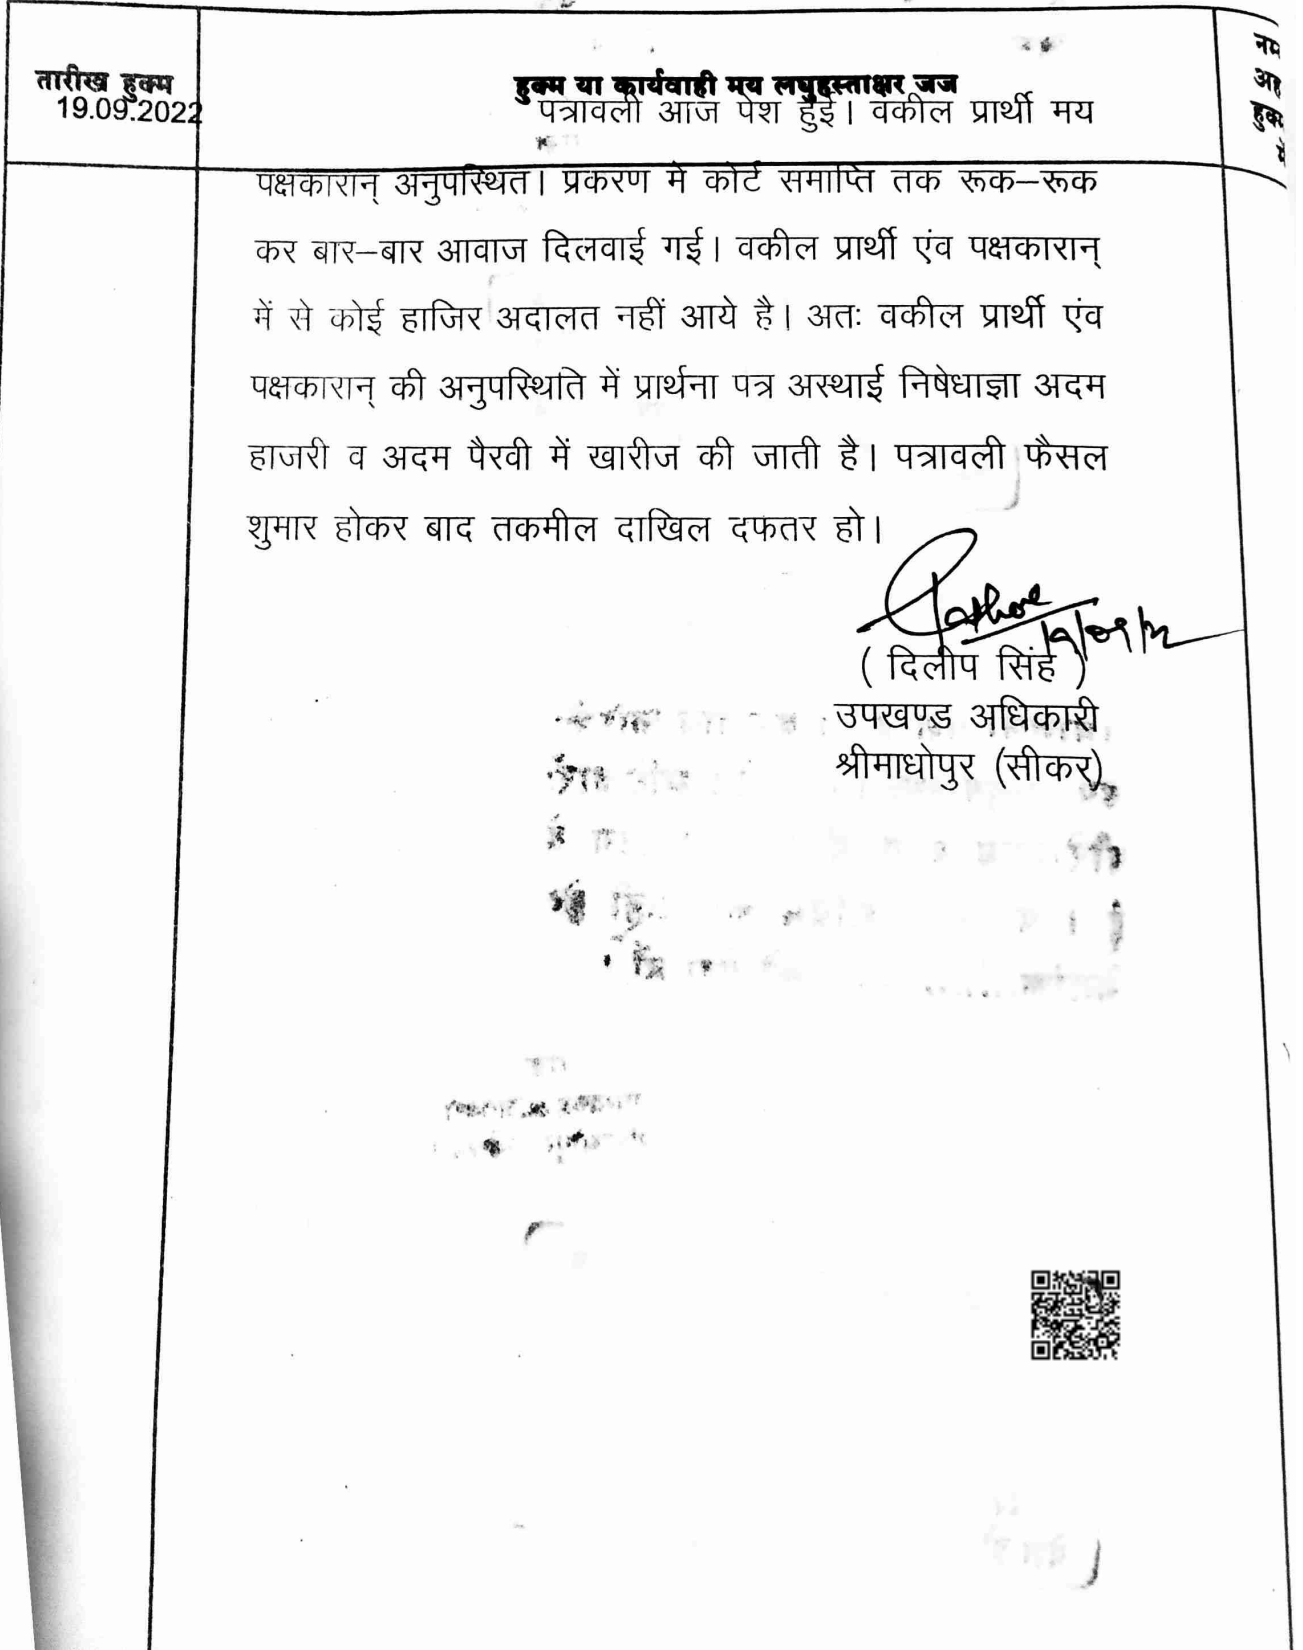 तारीख हुक्म
हुक्म या कार्यवाही मय लघुहस्ताक्षर जज
नम
अह
हुक्म
में
19.09.2022
पत्रावली आज पेश हुई। वकील प्रार्थी मय
पक्षकारान् अनुपस्थित। प्रकरण मे कोर्ट समाप्ति तक रूक–रूक
कर बार–बार आवाज दिलवाई गई। वकील प्रार्थी एंव पक्षकारान्
में से कोई हाजिर अदालत नहीं आये है। अतः वकील प्रार्थी एंव
पक्षकारान् की अनुपस्थिति में प्रार्थना पत्र अस्थाई निषेधाज्ञा अदम
हाजरी व अदम पैरवी में खारीज की जाती है। पत्रावली फैसल
शुमार होकर बाद तकमील दाखिल दफतर हो।
19/09/22
( दिलीप सिंह )
उपखण्ड अधिकारी
श्रीमाधोपुर (सीकर)